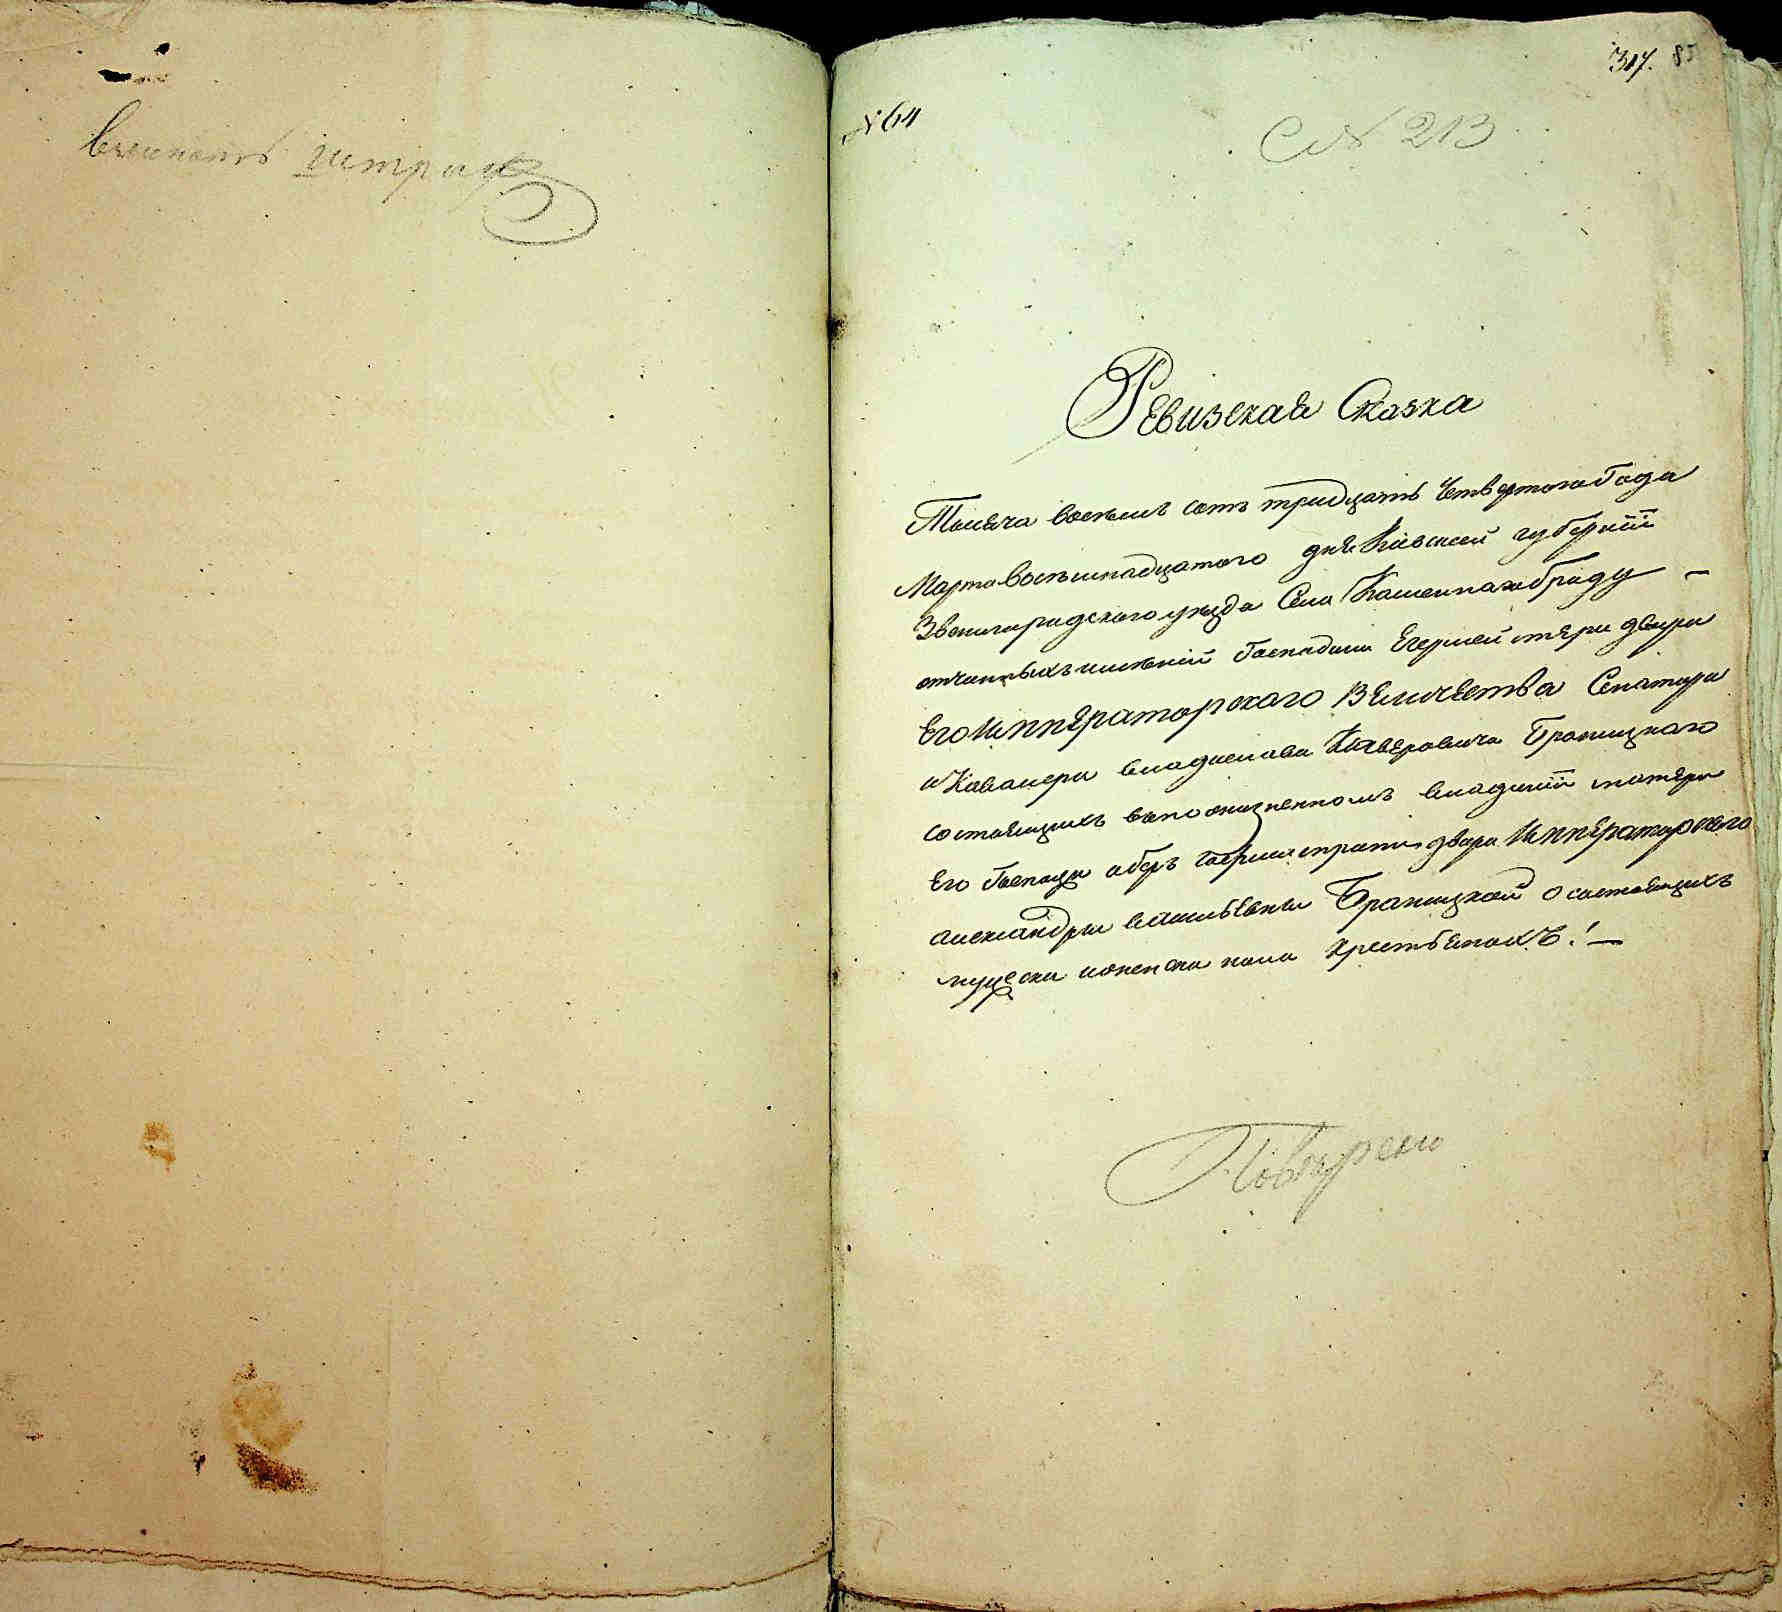 317. 85
№ 64
№ 213
взыскать штрафъ
Ревизская Сказка
Тысяча восемь сотъ тридцать Четвертого Года
Марта Восемнадцатого дня Киевской губерніи
Звенигородского уезда Села Каменнагобраду –
отчиновыхъ имѣній Господина Егермейстера двора
Его Императорского Величества Сенатора
и Кавалера владислава Ксаверовича Браницкого
состоящихъ въпожизненномъ владѣніи матери
Его Госпожи оберъ гофмейстрины двора Императорского
александры васильевны Браницкой о состоящихъ
мужеска иженска пола крестьянахъ! —